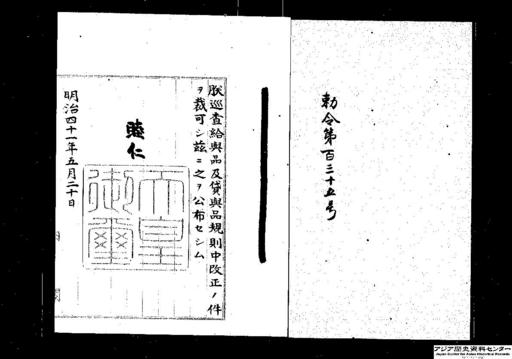 勅令第百三十五号
朕巡査給與品及貸與品規則中改正ノ件
ヲ裁可シ茲ニ之ヲ公布セシム
睦仁
天皇御璽
明治四十一年五月二十日
アジア歴史資料センター
Japan Center for Asian Historical Records